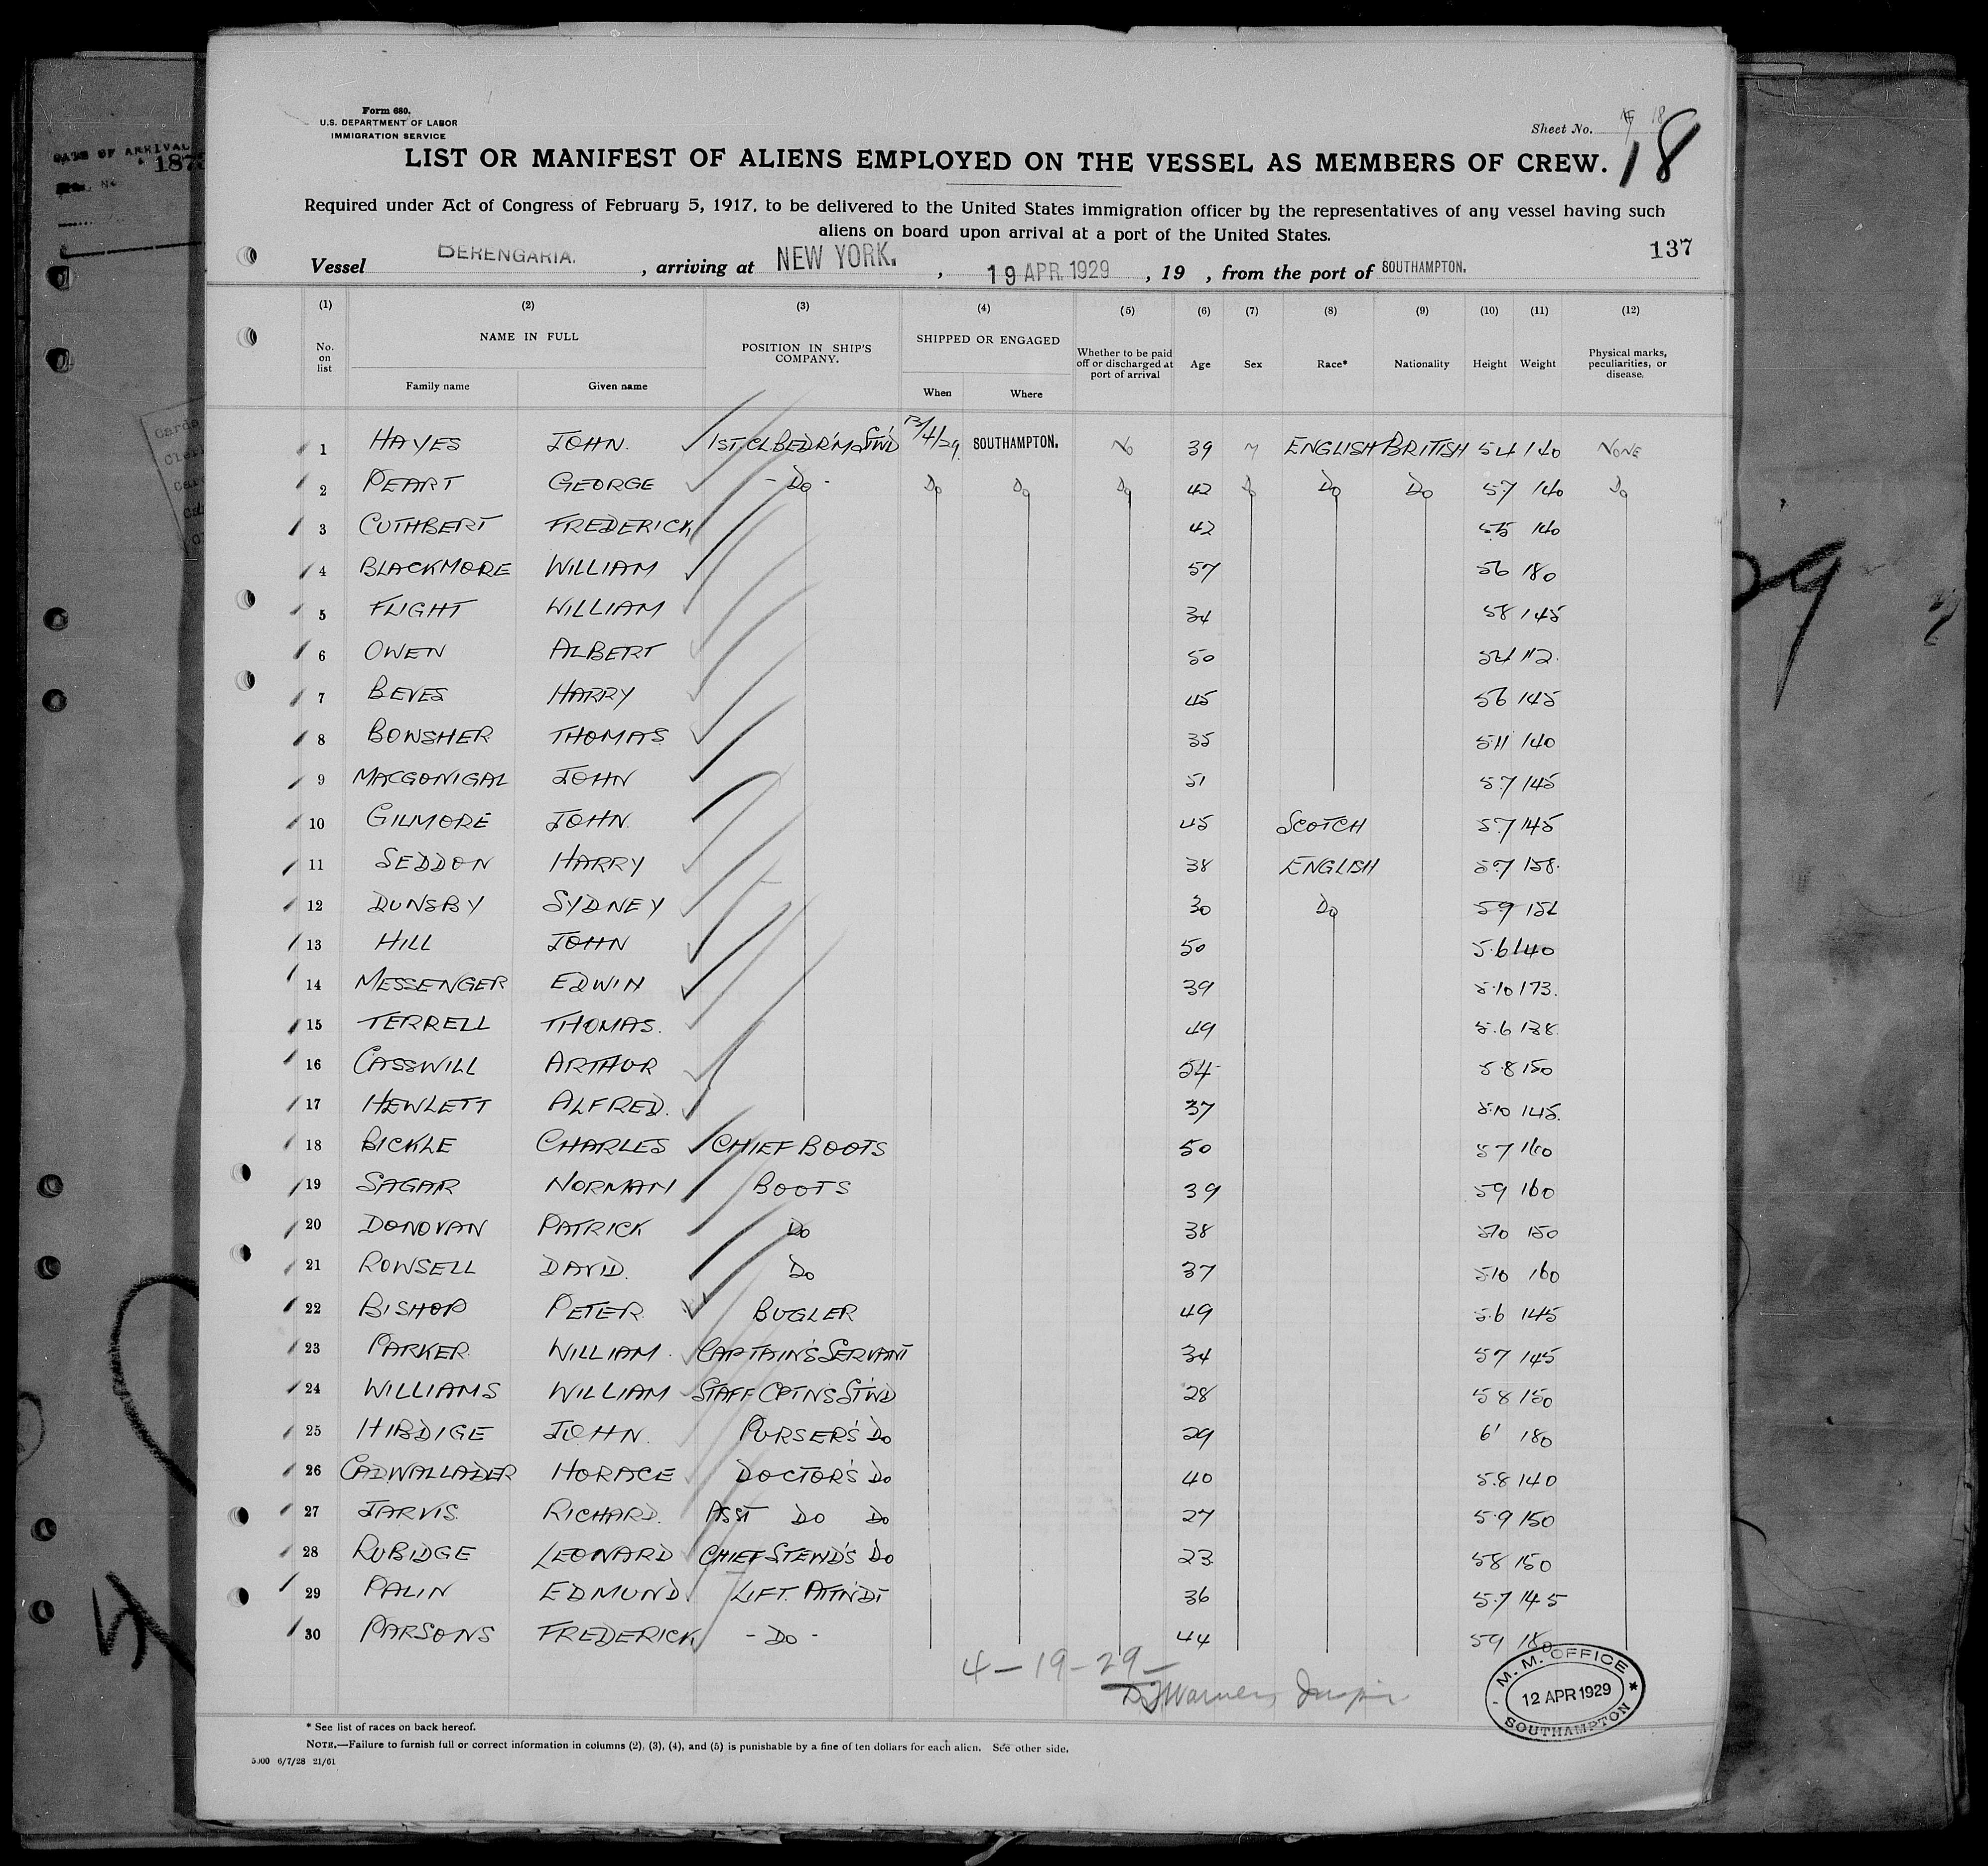 Form 680.
U.S. DEPARTMENT OF LABOR
IMMIGRATION SERVICE
Sheet No. 18
18
LIST OR MANIFEST OF ALIENS EMPLOYED ON THE VESSEL AS MEMBERS OF CREW.
Required under Act of Congress of February 5, 1917, to be delivered to the United States immigration officer by the representatives of any vessel having such
aliens on board upon arrival at a port of the United States.
137
Vessel BERENGARIA. , arriving at NEW YORK. , 19 APR. 1929 , 19 , from the port of SOUTHAMPTON.
(1) (2) (3) (4) (5) (6) (7) (8) (9) (10) (11) (12)
No. on list NAME IN FULL POSITION IN SHIP'S COMPANY. SHIPPED OR ENGAGED Whether to be paid off or discharged at port of arrival Age Sex Race* Nationality Height Weight Physical marks, peculiarities, or disease.
Family name Given name When Where
1 HAYES JOHN. 1ST.CL.BEDR'M.STW'D /4/29. SOUTHAMPTON. No 39 M ENGLISH BRITISH 54 140 NONE
2 PEART GEORGE - Do - Do Do Do 42 Do Do Do 57 140 Do
3 CUTHBERT FREDERICK 42 5.5 140
4 BLACKMORE WILLIAM 57 56 180
5 FLIGHT WILLIAM 34 58 145
6 OWEN ALBERT 50 54 112.
7 BEVES HARRY 45 56 145
8 BOWSHER THOMAS 35 5.11 140
9 MACGONIGAL JOHN 51 5.7 145
10 GILMORE JOHN. 45 SCOTCH 5.7 145
11 SEDDON HARRY 38 ENGLISH 5.7 158.
12 DUNSBY SYDNEY 30 Do 59
13 HILL JOHN 50 5.6 140
14 MESSENGER EDWIN 39 5.10 173.
15 TERRELL THOMAS. 49 5.6 138.
16 CASSWILL ARTHUR 54 5.8 150
17 HEWLETT ALFRED. 37 5.10 145.
18 BICKLE CHARLES CHIEF BOOTS 50 57 160
19 SAGAR NORMAN BOOTS 39 59 160
20 DONOVAN PATRICK Do 38 5.10 150
21 ROWSELL DAVID. Do 37 5.10 160
22 BISHOP PETER BUGLER 49 5.6 145
23 PARKER WILLIAM. CAPTAIN'S SERVANT 34 57 145
24 WILLIAMS WILLIAM STAFF CPTNS STWD 28 58 150
25 HIBDIGE JOHN. PURSER'S Do 29 6' 180
26 CADWALLADER HORACE DOCTOR'S Do 40 5.8 140
27 JARVIS. RICHARD. ASST DO Do 27 5.9 150
28 RUBIDGE LEONARD CHIEF STEWD'S Do 23. 58 150
29 PALIN EDMUND. LIFT. ATTNDT 36 5.7 145
30 PARSONS FREDERICK - Do - 44 59 180
4-19-29-
M. M. OFFICE
12 APR 1929
SOUTHAMPTON
* See list of races on back hereof.
NOTE.—Failure to furnish full or correct information in columns (2), (3), (4), and (5) is punishable by a fine of ten dollars for each alien. See other side.
5000 6/7/28 21/61